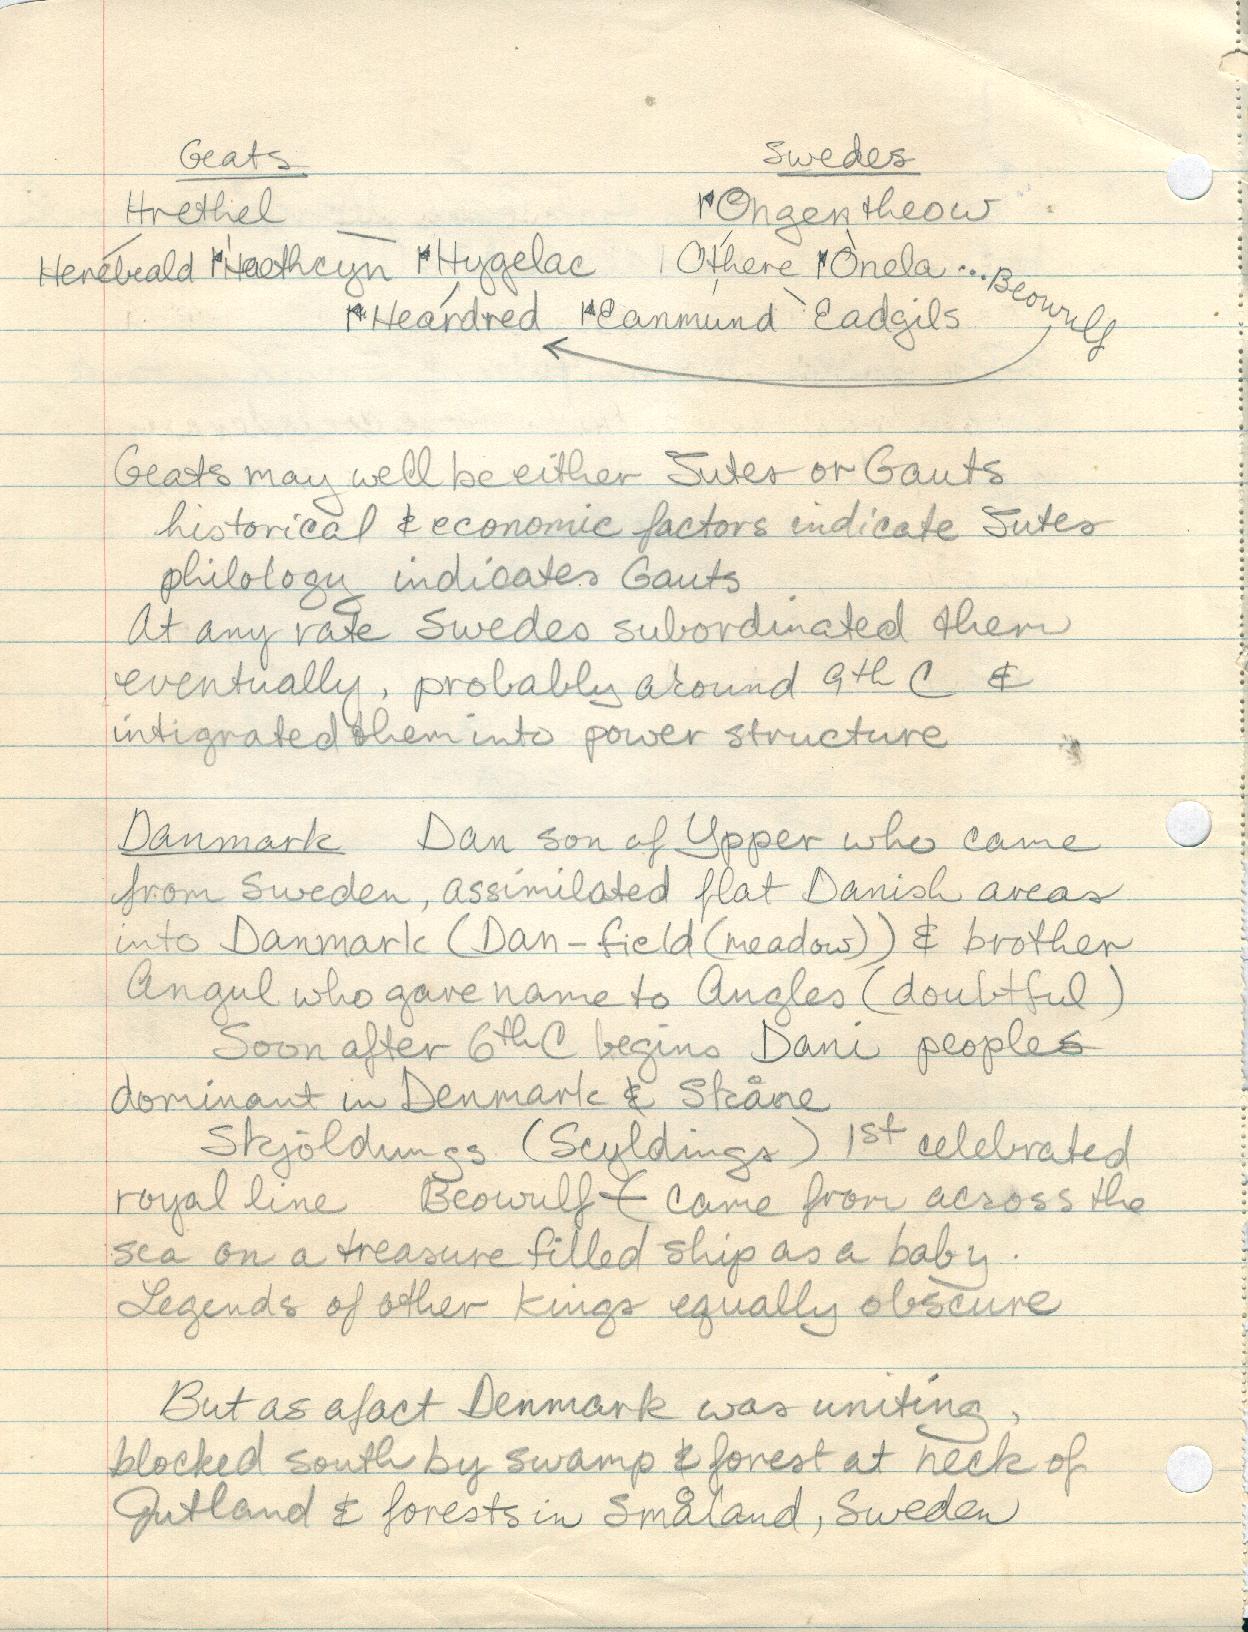 Geats Swedes
Hrethel Ongentheow
Herebeald Haethcyn Hygelac Othere Onela ... Beowulf
Heardred Eanmund Eadgils
Geats may well be either Jutes or Gauts
historical & economic factors indicate Jutes
philology indicates Gauts
At any rate Swedes subordinated them
eventually, probably around 9th C &
intigrated them into power structure
Danmark Dan son of Ypper who came
from Sweden, assimilated flat Danish areas
into Danmark (Dan-field (meadow)) & brother
Angul who gave name to Angles (doubtful)
Soon after 6th C begins Dani peoples
dominant in Denmark & Skåne
Skjöldungs (Scyldings) 1st celebrated
royal line Beowulf came from across the
sea on a treasure filled ship as a baby.
Legends of other kings equally obscure
But as a fact Denmark was uniting,
blocked south by swamp & forest at neck of
Jutland & forests in Småland, Sweden